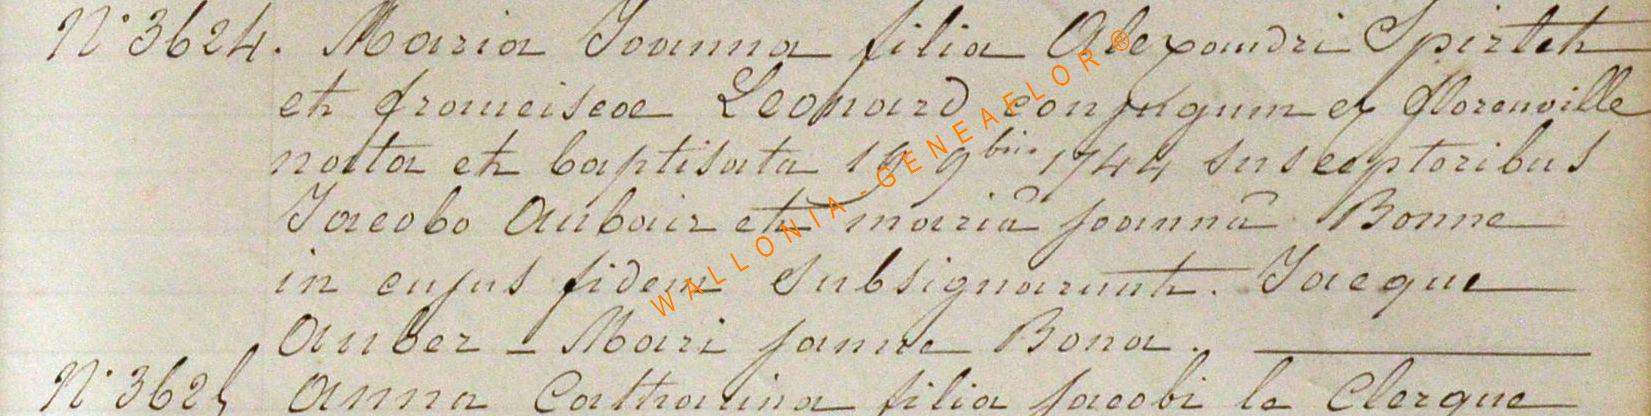 N° 3624. Maria Joanna filia Alexandri Spirlet
et franciscae Leonard conjugum ex florenville
nata et baptisata 19 9bris 1744 susceptoribus
Jacobo Aubair et mariâ joannâ Bonne
in cujus fidem subsignarunt. Jacque
Auber - Mari janne Bona.
N° 3625 Anna Catharina filia jacobi le Clerque
WALLONIA-GENEAFLOR®